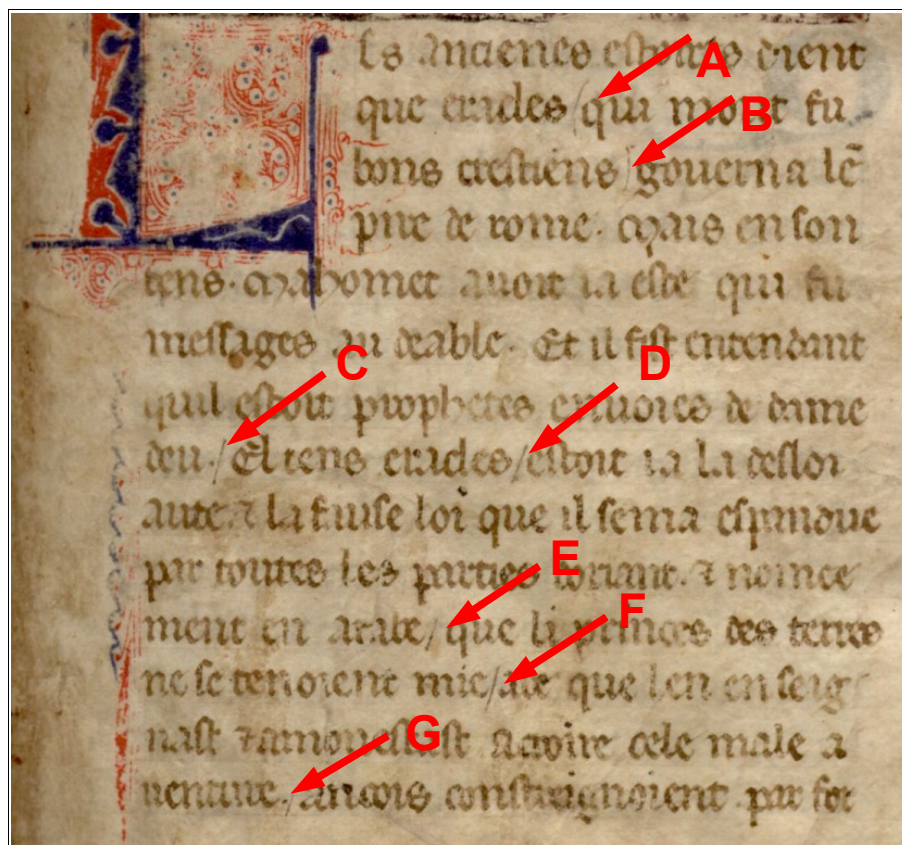 Les ancienes estoires dient A
que eracles / qui molt fu B
bons crestiens / gouerna lē
pire de rome. Mais en son
tens. Mahomet auoit ia este qui fu
messages au deable. Et il fist entendant
C D
quil estoit prophetes enuoies de dame
deu. / El tens eracles / estoit ia la desloi
aute ⁊ la fause loi que il sema espandue
par toutes les parties doriant. ⁊ nomee E
ment en arabe / que li princes des terres F
ne se tenoient mie / ace que len enseig
nast ⁊ amonestast acroire cele male a G
uenture. / ancois constreignoient par for